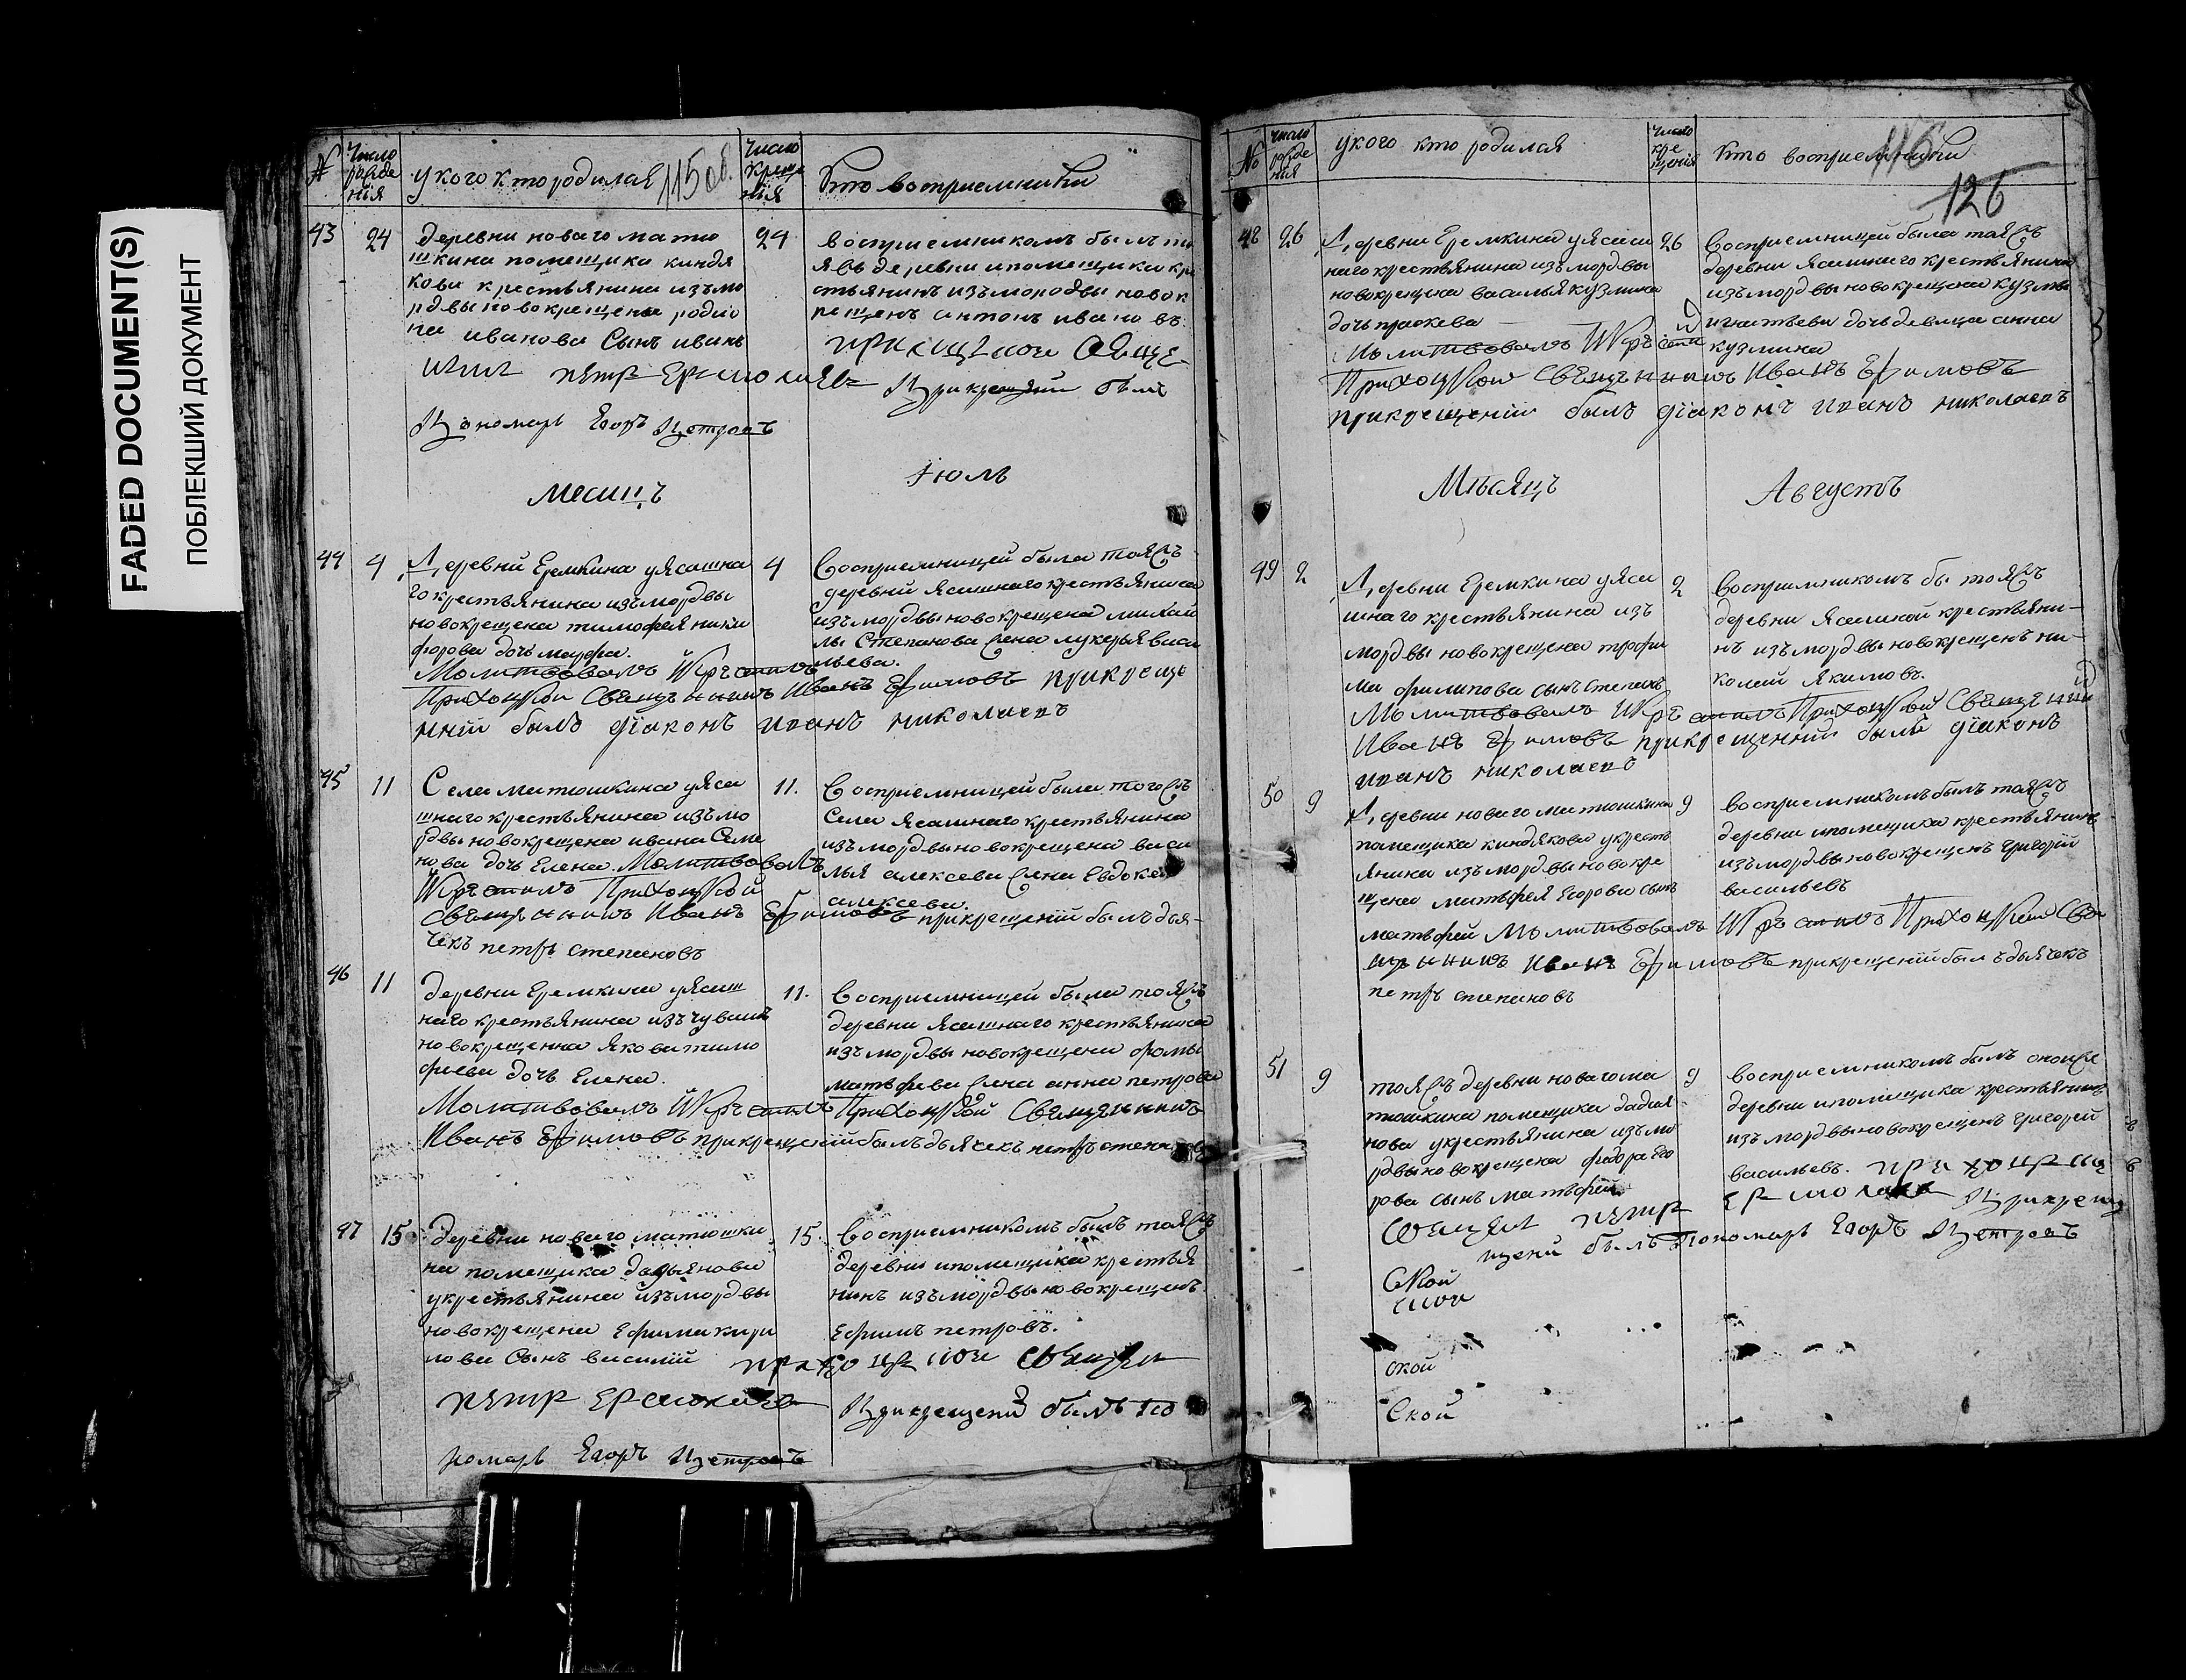 FADED DOCUMENT(S)
ПОБЛЕКШИЙ ДОКУМЕНТ
№
число рожде нія
у кого кто родилая
115 об.
число креще нія
кто восприемники
43 24
деревни новаго матю
шкина помещика киндя
кова крестьянина изъ мо
рдвы новокрещена родио
на иванова сынъ иванъ
24
восприемникомъ былъ
деревни и помещика
стьянинъ изъ мордвы новок
рещенъ антонъ ивановъ
петр Ермолаев
При крещении былъ
Пономарь Егоръ Петровъ
месицъ
іюль
44 4
Деревни Еремкина у ясашна
го крестьянина изъ мордвы
новокрещена тимофея ники
форова дочь марфа.
4
Восприемницей была тояжъ
деревни ясашнаго крестьянина
изъ мордвы новокрещена михай
лы Степанова жена лукерья васи
льева.
Молитвовалъ и крестилъ
Приходской Священникъ Иванъ Ефимовъ при креще
ній былъ діаконъ иванъ николаевъ
45 11
Села матюшкина у яса
шнаго крестьянина изъ мо
рдвы новокрещена ивана Семе
нова дочь Елена. Молитвовалъ
11.
Восприемницей была тогожъ
Села ясашнаго крестьянина
изъ мордвы новокрещена васи
лья алексеева жена Евдокея
алексева.
и крестилъ Приходской
Священникъ Иванъ Ефимовъ при крещеній былъ дья-
чекъ петръ степановъ
46 11
деревни Еремкина у ясаш
наго крестьянина изъ чувашъ
новокрещенна якова тимо
феева дочь Елена.
11.
Восприемницей была тояжъ
деревни ясашнаго крестьянина
изъ мордвы новокрещена фомы
матвфева жена анна петрова
Молитвовалъ и крестилъ Приходской Священникъ
Иванъ Ефимовъ при крещеній былъ дьячекъ петръ степановъ
47 15
деревни новаго матюшки
на помещика дадьянова
у крестьянина изъ мордвы
новокрещена Ефима кири
лова Сынъ василій
15.
Восприемникомъ былъ тояжъ
деревни и помещика крестья
нинъ изъ мордвы новокрещенъ
Ефимъ петровъ.
петр Ермолаев
При крещении былъ по
номарь Егоръ Петровъ
№
число рожде нія
у кого кто родилая
число кре щенія
кто восприемники
116
126
48 26
Деревни Еремкина у ясаш
наго крестьянина изъ мордвы
новокрещена василья кузмина
дочь праскева
26
Восприемницей была тояжъ
деревни ясашнаго крестьянина
изъ мордвы новокрещена кузмы
игнатьева дочь девица анна
кузмина
Молитвовалъ и крестилъ
Приходской Священникъ Иванъ Ефимовъ
при крещеніи былъ діаконъ иванъ николаевъ
Мѣсяцъ
Августъ
49 2
Деревни Еремкина у яса
шнаго крестьянина изъ
мордвы новокрещена трофи
ма филипова сынъ степанъ
2
Восприемникомъ бы тояжъ
деревни ясашной крестьяни-
нъ изъ мордвы новокрещенъ ни-
колай якимовъ.
Молитвовалъ и крестилъ Приходской Священник
Иванъ Ефимовъ при крещенніи былъ діаконъ
иванъ николаевъ
50 9
Деревни новаго матюшкина
памещика киндякова у кресть
янина изъ мордвы новокре
щена матвфея Егорова сынъ
матвфей
9
Восприемникомъ былъ тояжъ
деревни и помещика крестьянинъ
изъ мордвы новокрещенъ григорій
васильевъ
Молитвовалъ и крестилъ Приходской Свя
щенникъ Иванъ Ефимовъ при крещеній былъ дьячекъ
петръ степановъ
51 9
тояжъ деревни новаго ма
тюшкина помещика дадья
нова у крестьянина изъ мо
рдвы новокрещена федора Его
рова сынъ матвфей
9
восприемникомъ былъ
деревни и помещика крестьянинъ
изъ мордвы новокрещенъ григорей
васильевъ.
петр Ермолаев При крещ
щении былъ Пономарь Егоръ Петровъ
Ской
ской
Ской